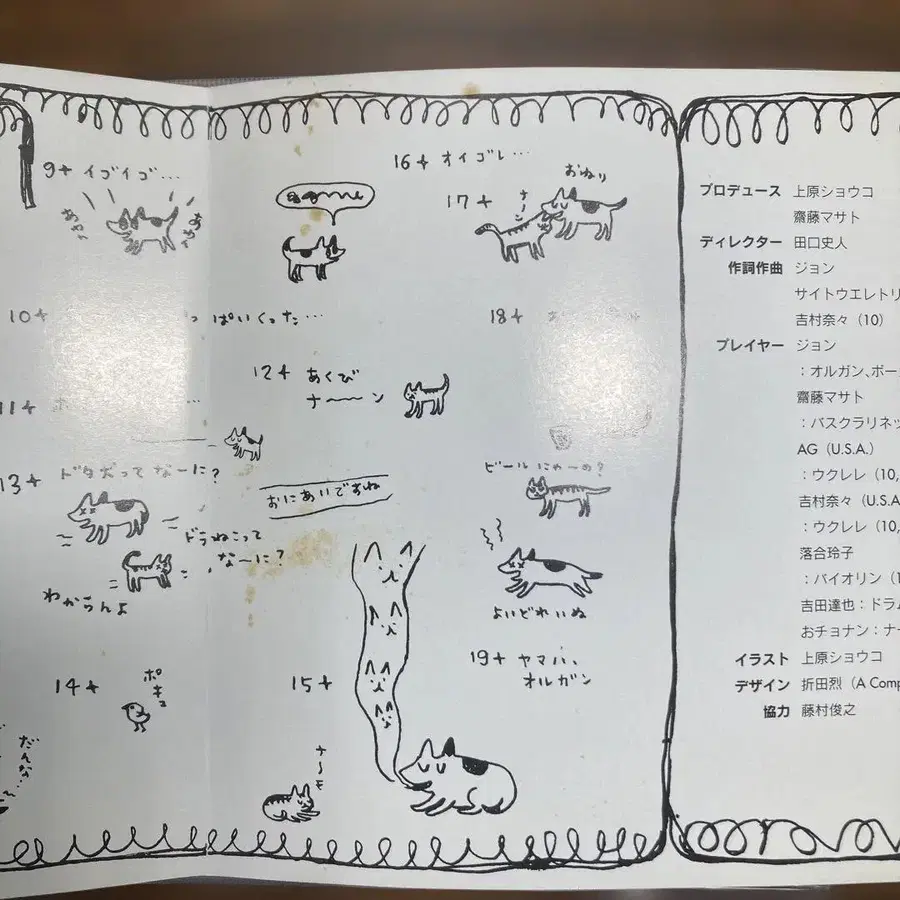 9 イゴイゴ…
16 オイゴレ…
17
おぬり
ナ〜ン
10
ぱいくった…
18
12 あくび
ナ〜〜ン
11
13 ドタ犬ってな〜に?
おにあいですね
ビールにゃ〜め?
ドラねこって
な〜に?
わからんよ
よいどれいぬ
14
ポキョ
15
19 ヤマハ、
オルガン
だんな…
ナ〜モ
プロデュース 上原ショウコ
齋藤マサト
ディレクター 田口史人
作詞作曲 ジョン
サイトウエレトリ
吉村奈々(10)
プレイヤー ジョン
:オルガン、ボー
齋藤マサト
:バスクラリネッ
AG(U.S.A.)
:ウクレレ(10,
吉村奈々(U.S.A
:ウクレレ(10,
落合玲子
:バイオリン(1
吉田達也:ドラム
おチョナン:ナー
イラスト 上原ショウコ
デザイン 折田烈(A Comp
協力 藤村俊之